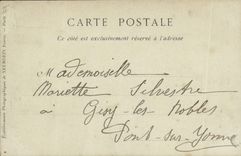 CARTE POSTALE
Ce côté est exclusivement réservé à l'adresse
Mademoiselle
Mariette Silvestre
à Gisy-les Nobles
Pont-sur-Yonne
Etablissements Photographiques de NEURDEIN Frères. - Paris